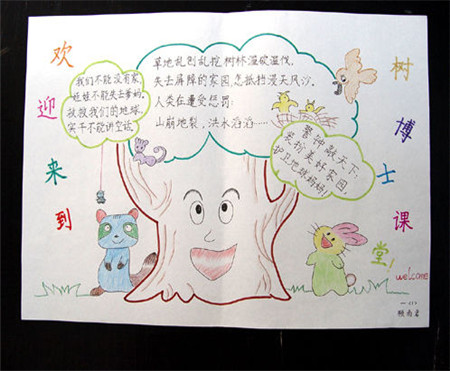 欢迎来到
树博士课堂!
welcome
我们不能没有家,
娃娃不能失去爹妈,
救救我们的地球,
实干不能讲空话。
草地乱刨乱挖树林滥砍滥伐,
失去屏障的家园怎抵挡漫天风沙。
人类在遭受惩罚:
山崩地裂,洪水滔滔……
警钟敲天下,
爱惜美好家园,
护卫地球妈妈!